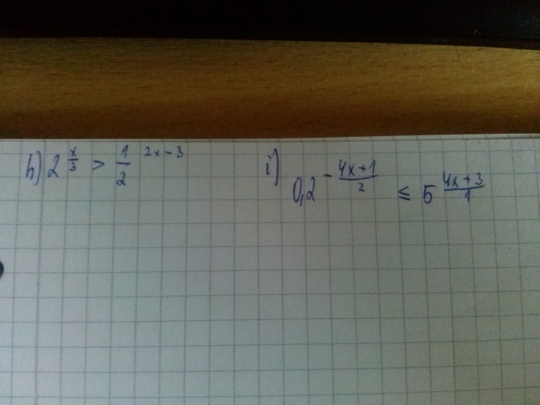 h) 2^(x/3) > 1/2^(2x-3)
i) 0,2^(-(4x+1)/2) ≤ 5^((4x+3)/1)